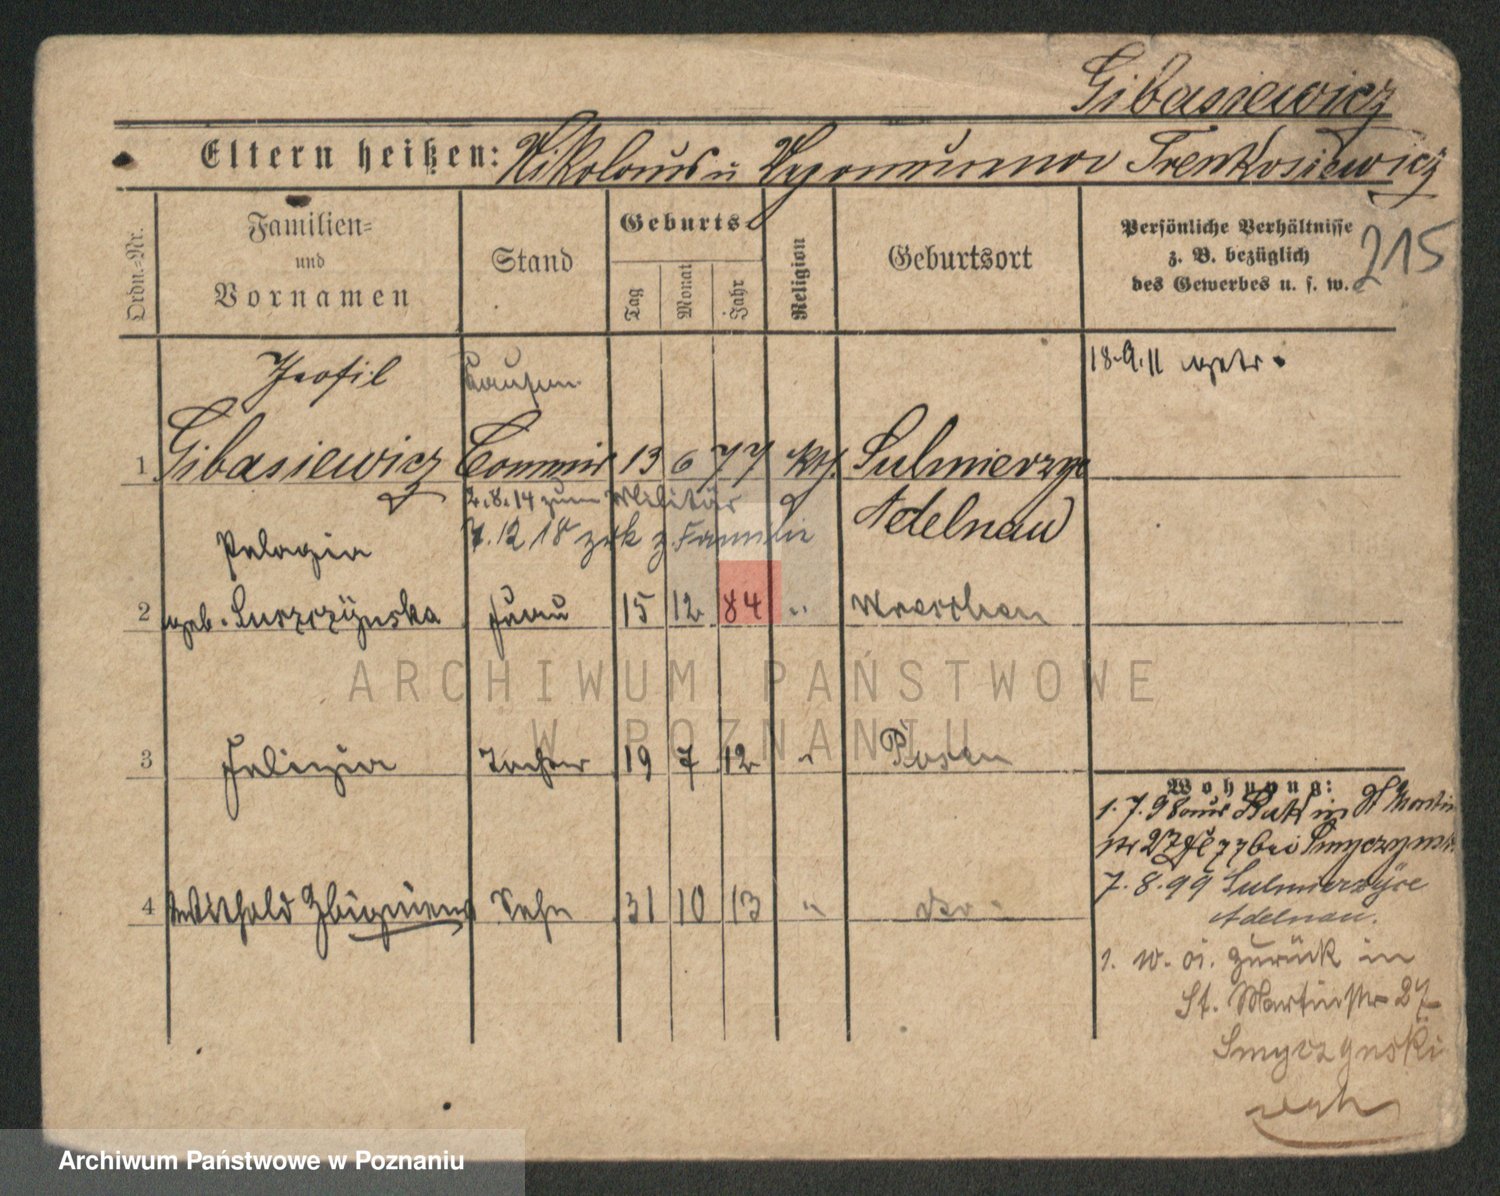 Gibasiewicz
Eltern heißen: Nikolaus u Trenkosiewicz
215
Ordn.-Nr.
Familien-
und
Vornamen
Stand
Geburts-
Tag
Monat
Jahr
Religion
Geburtsort
Persönliche Verhältnisse
z. B. bezüglich
des Gewerbes u. s. w.
Teofil
Kaufm.
18.9.11 getr.
1 Gibasiewicz Commis 13 6 77 kth. Sulmierzyce
2.8.14 zum Militär
Adelnau
7.12 18 zrk z. Familie
Pelagia
2 geb. Surzczÿnska Frau 15 12 84 " Wreschen
3 Felizia Tochter 19 7 12 " Posen
4 Witthold Zbigniew Sohn 31 10 13 " do
Wohnung:
1.7.98 aus Buk in St Martin
str 27 bei Smyczynski
7.8.99 Sulmierzÿce
Adelnau.
1. 10. 01. zurück in
St. Martinstr 27
Smyczynski
ARCHIWUM PAŃSTWOWE
W POZNANIU
Archiwum Państwowe w Poznaniu